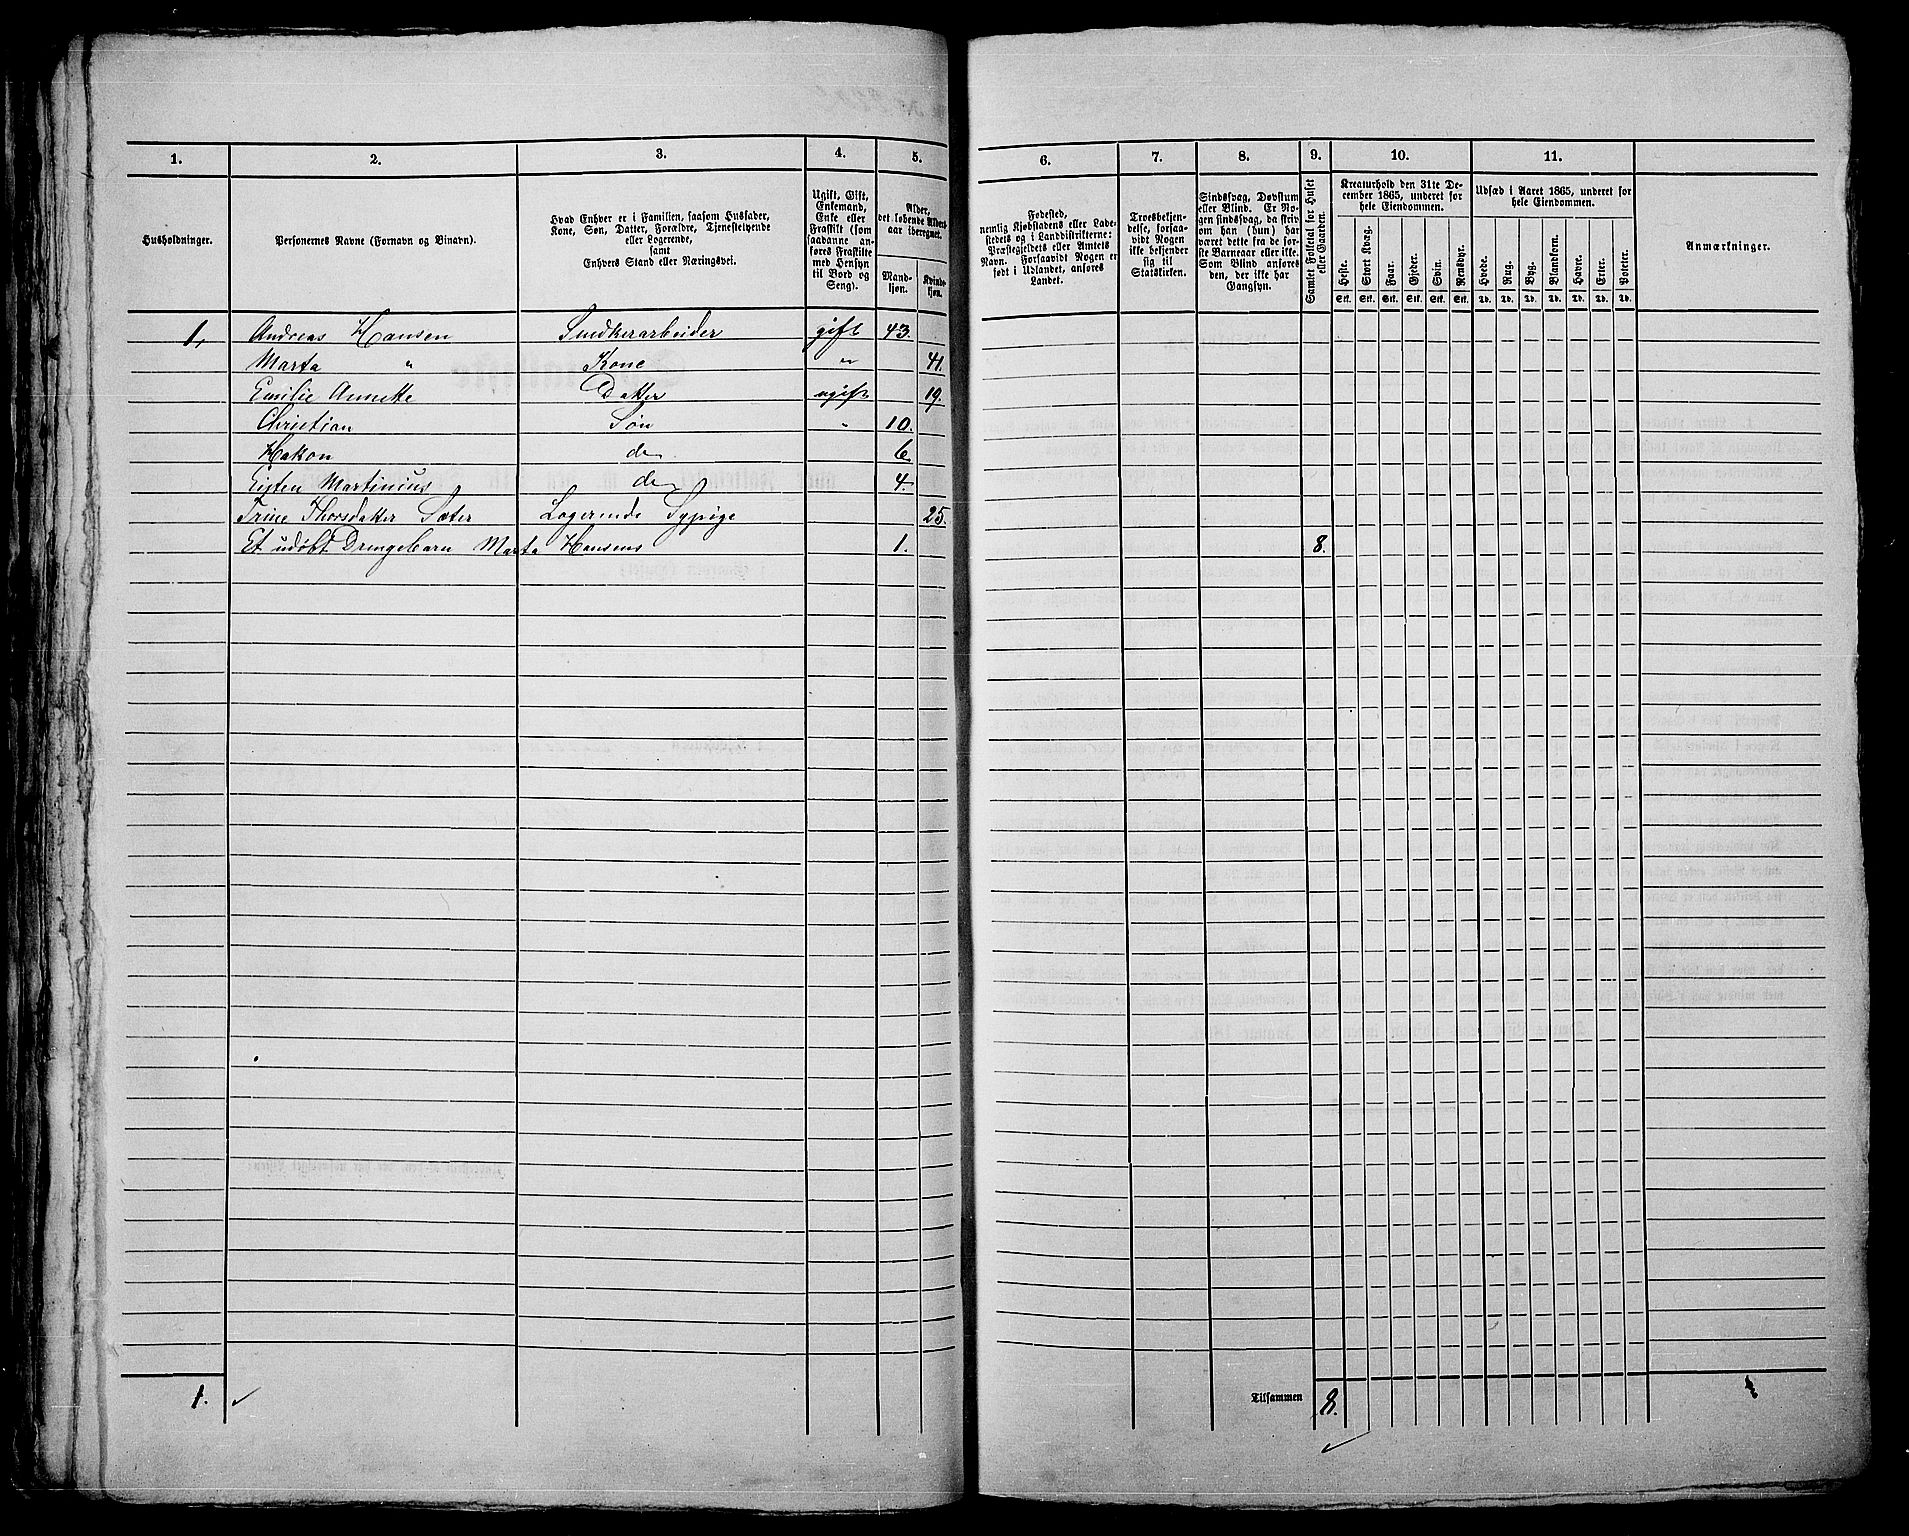 1. 2. 3. 4. 5. 6. 7. 8. 9. 10. 11.
Husholdninger.
Personernes Navne (Fornavn og Binavn).
Hvad Enhver er i Familien, saasom Husfader,
Kone, Søn, Datter, Forældre, Tjenestetyende
eller Logerende,
samt
Enhvers Stand eller Næringsvei.
Ugift, Gift,
Enkemand,
Enke eller
Fraskilt (som
saadanne an-
føres Fraskilte
med Hensyn
til Bord og
Seng).
Alder,
det løbende Alders-
aar iberegnet.
Mand-
kjøn.
Kvinde-
kjøn.
Fødested,
nemlig Kjøbstadens eller Lade-
stedets og i Landdistrikterne:
Præstegjeldets eller Amtets
Navn. Forsaavidt Nogen er
født i Udlandet, anføres
Landet.
Troesbekjen-
delse, forsaa-
vidt Nogen
ikke bekjender
sig til
Statskirken.
Sindssvag, Døvstum
eller Blind. Er No-
gen sindssvag, da skriv
om han (hun) har
været dette fra de før-
ste Barneaar eller ikke.
Som Blind anføres
den, der ikke har
Gangsyn.
Samlet Folketal for Huset
eller Gaarden.
Kreaturhold den 31te De-
cember 1865, underet for
hele Eiendommen.
Heste. Stort Kvæg. Faar. Gjeder. Svin. Rensdyr.
Stk. Stk. Stk. Stk. Stk. Stk.
Udsæd i Aaret 1865, underet for
hele Eiendommen.
Hvede. Rug. Byg. Blandkorn. Havre. Erter. Poteter.
Td. Td. Td. Td. Td. Td. Td.
Anmærkninger.
1, Andreas Hansen Snedkerarbeider gift 43.
Marta " Kone " 41.
Emilie Annette Datter ugift 19.
Christian Søn " 10.
Hakon do 6
Eisten Martinius do 4.
Trine Thorsdatter Sæter Logerende Sypige 25.
Et udøbt Drengebarn Marta Hansens 1. 8.
1.
Tilsammen 8.